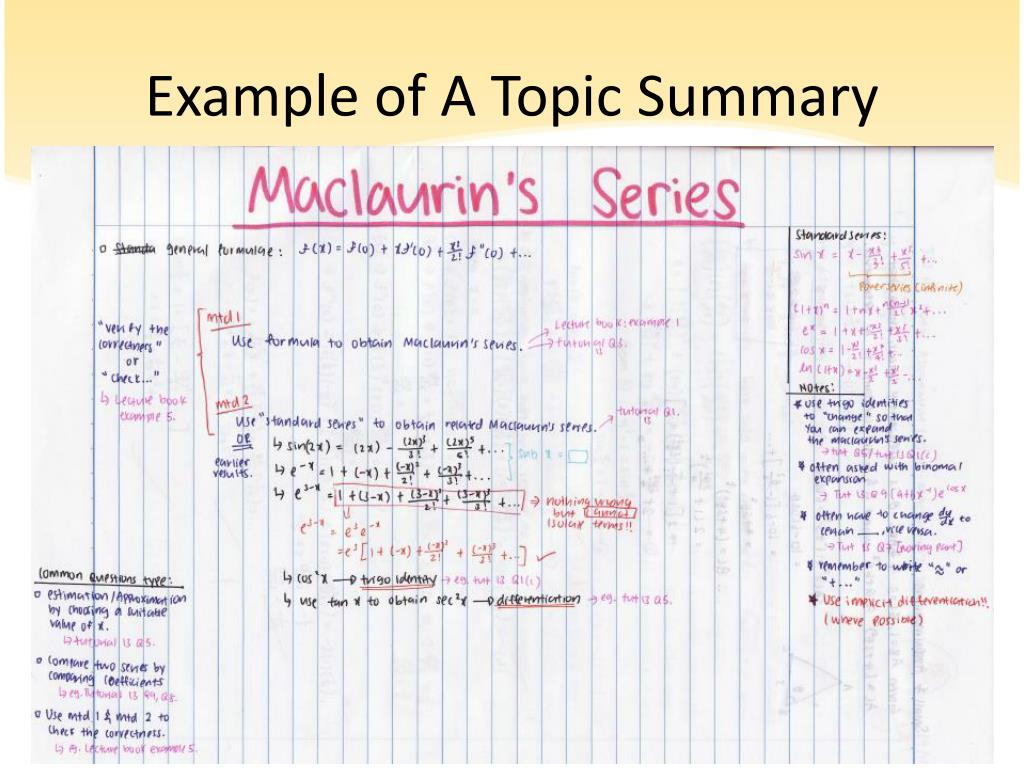 Example of A Topic Summary
Maclaurin's Series
general formulae : f(x) = f(0) + xf'(0) + x²/2! f''(0) + ...
"verify the
correctness"
or
"check..."
↳ Lecture book
example 5.
mtd 1
Use formula to obtain Maclaurin's series.
Lecture book: example 1
tutorial Q3.
13
mtd 2
Use "standard series" to obtain related Maclaurin's series.
tutorial Q1.
13
OR
earlier
results.
↳ sin(2x) = (2x) - (2x)³/3! + (2x)⁵/5! + ...
sub x = □
↳ e⁻ˣ = 1 + (-x) + (-x)²/2! + (-x)³/3! + ...
↳ e³⁻ˣ = 1 + (3-x) + (3-x)²/2! + (3-x)³/3! + ...
→ nothing wrong
but cannot
isolate terms!!
e³⁻ˣ = e³e⁻ˣ
= e³[1 + (-x) + (-x)²/2! + (-x)³/3! + ...] ✓
↳ cos²x → trigo identity → eg. tut 13 Q1(c)
↳ use tan x to obtain sec²x → differentiation → eg. tut 13 Q5.
Common Questions type:
estimation/Approximation
by choosing a suitable
value of x.
↳ tutorial 13 Q5.
Compare two series by
comparing coefficients
↳ eg. Tutorial 13 Q4, Q8.
Use mtd 1 & mtd 2 to
check the correctness.
↳ eg. Lecture book example 5.
Standard series:
sin x = x - x³/3! + x⁵/5! + ...
Power series (infinite)
(1+x)ⁿ = 1 + nx + n(n-1)/2! x² + ...
eˣ = 1 + x + x²/2! + x³/3! + ...
cos x = 1 - x²/2! + x⁴/4! + ...
ln(1+x) = x - x²/2 + x³/3 - ...
Notes:
* use trigo identities
to "change" so that
you can expand
the maclaurin's series.
→ tut Q5/tut 13 Q1(c)
* often asked with binomal
expansion
→ Tut 13 Q9
* often have to change dy/dx to
certain ___, vice versa.
→ Tut 13 Q7
* remember to write "≈" or
"+..."
* Use implicit differentiation!!
(where possible)